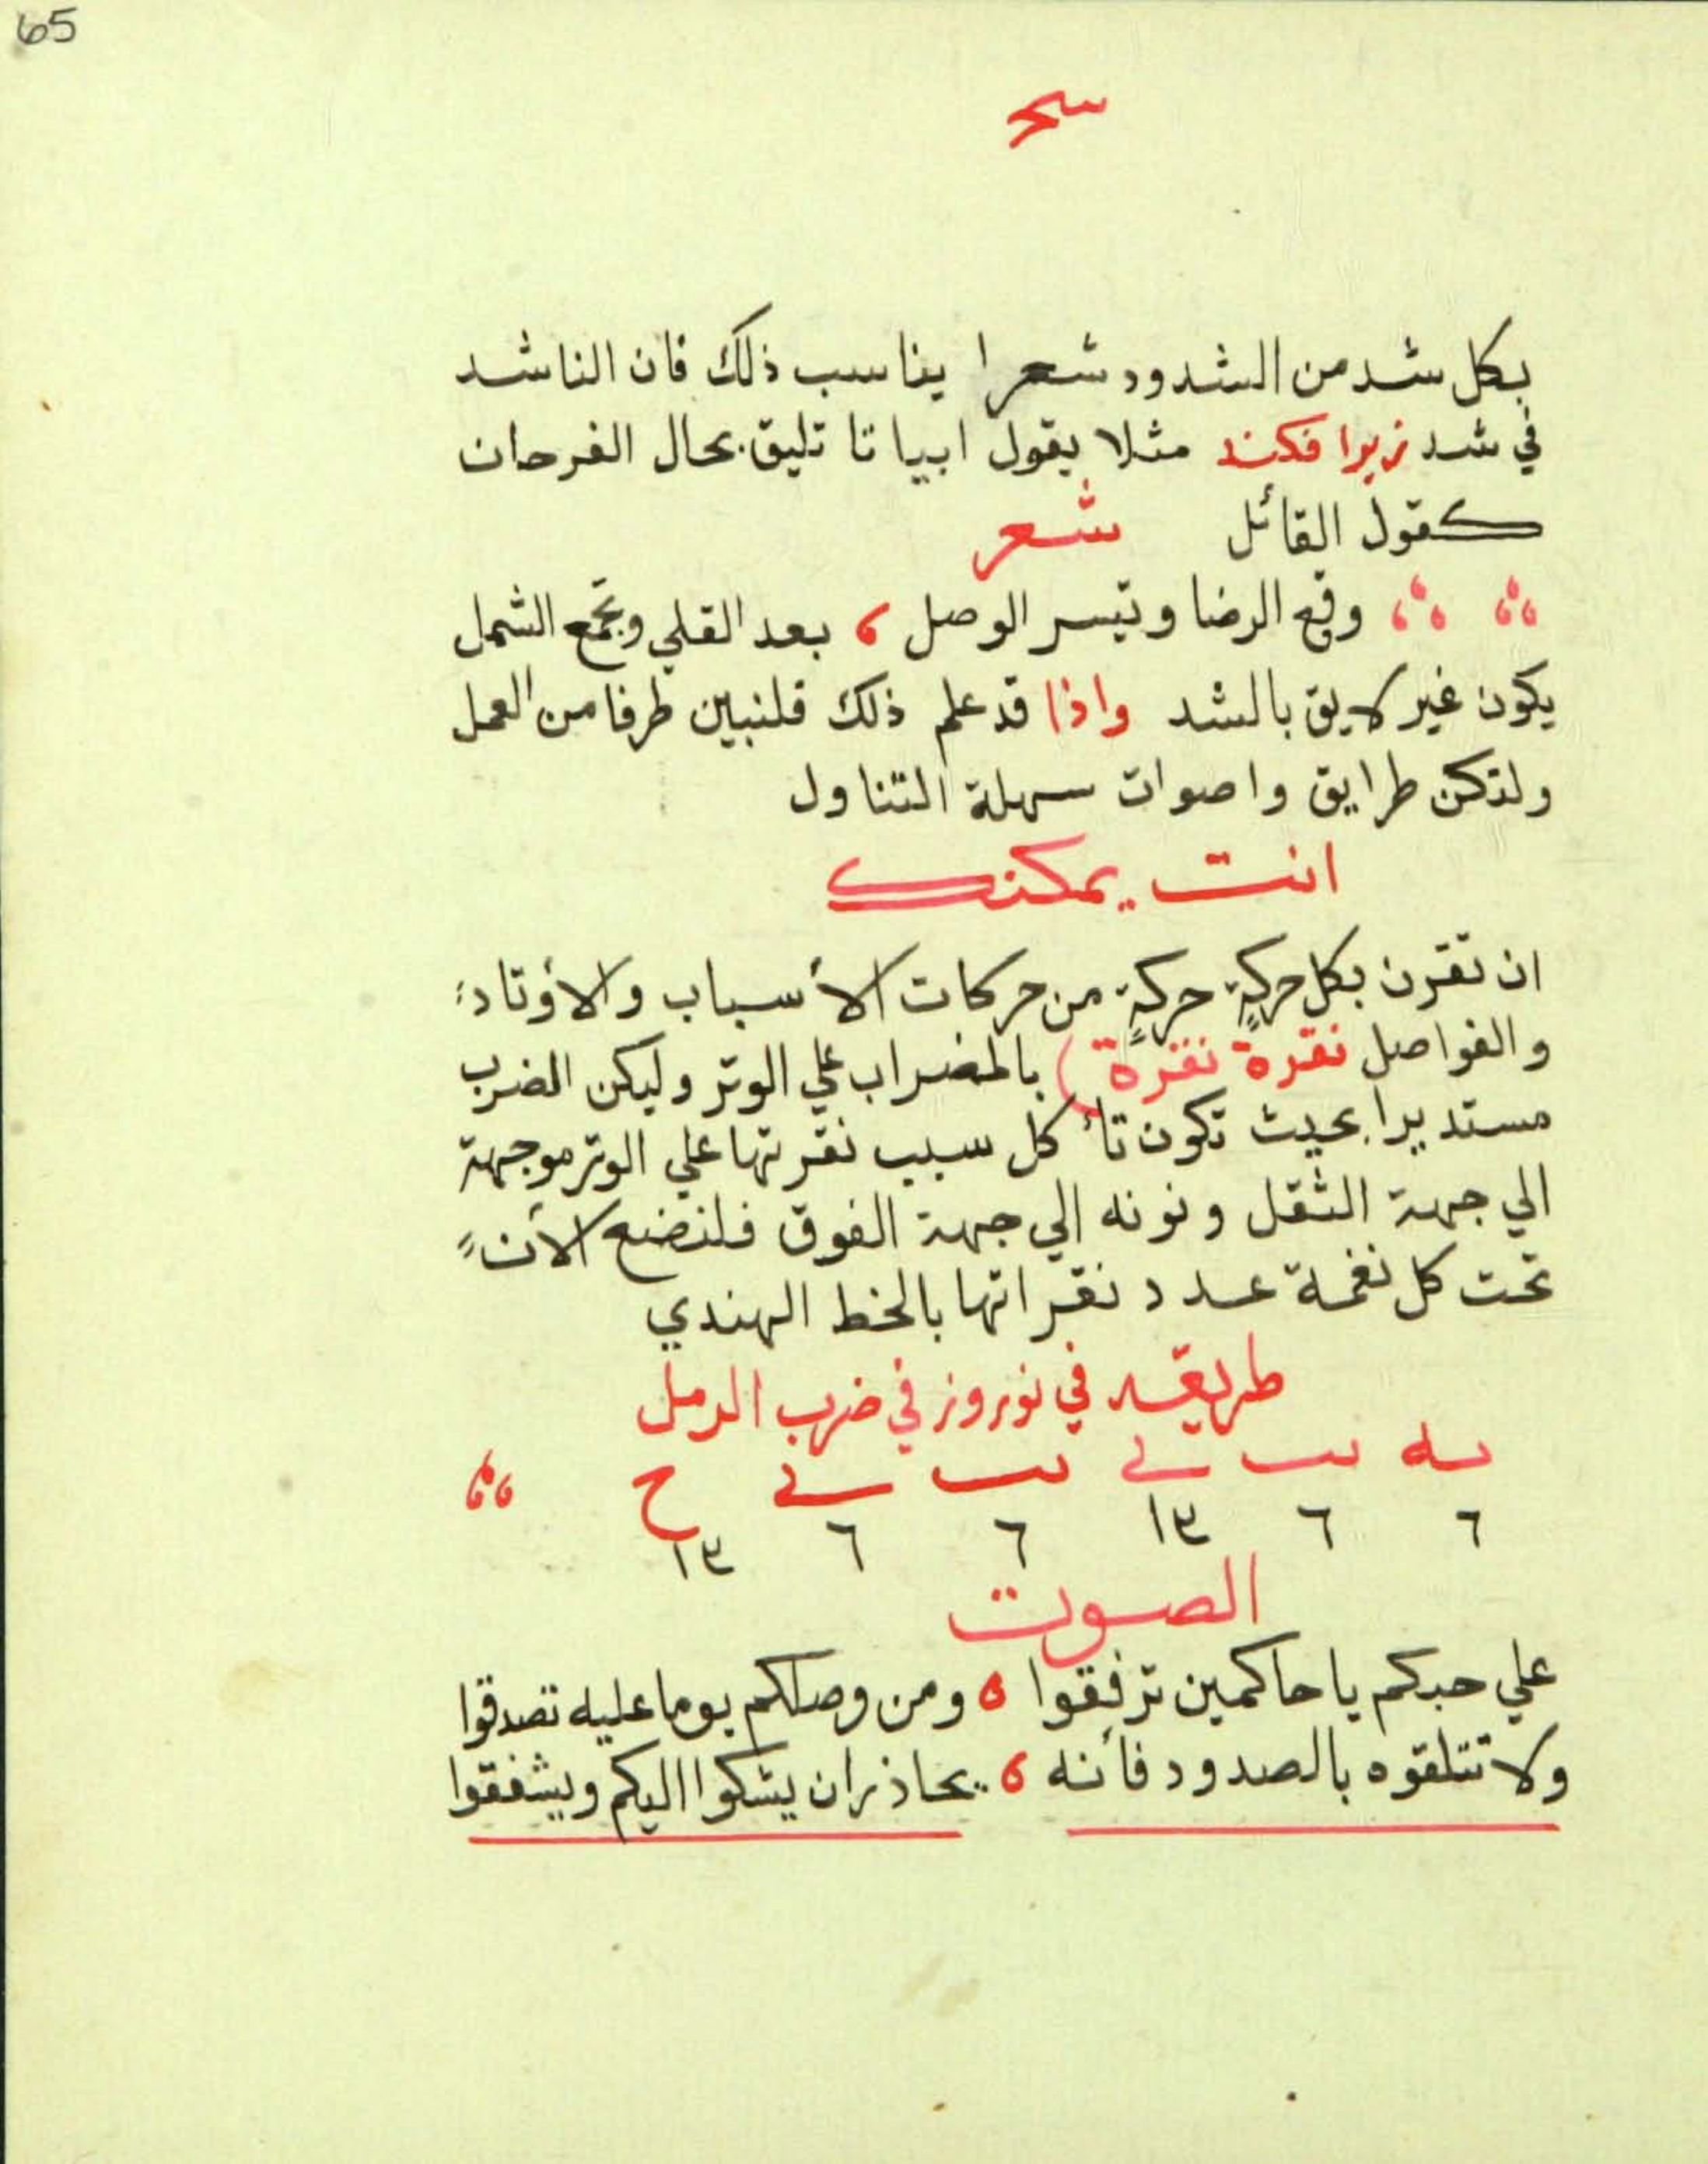 65
بكل شد من الشدود شعرا يناسب ذلك فان الناشد
في شد زيرا فكند مثلا يقول ابياتا تليق بحال الفرحان
كقول القائل شعر
وقع الرضا وتيسر الوصل ، بعد القلي وتجمع الشمل
يكون غير لايق بالشد واذا قد علم ذلك فلنبين طرفا من العمل
ولتكن طرايق واصوات سهلة التناول
انت يمكنك
ان تقرن بكل حركةٍ حركةٍ من حركات الأسباب والأوتاد
والفواصل نقرة نقرة ) بالمضراب علي الوتر وليكن الضرب
مستديرا بحيث تكون تاء كل سبب نقرتها علي الوتر موجهة
الي جهة الثقل ونونه الي جهة الفوق فلنضع الأن
تحت كل نغمة عدد نقراتها بالخط الهندي
طريقه في نوروز في ضرب الرمل
يه يب ي يب ي ح
٦ ٦ ١٢ ٦ ٦ ١٢
الصوت
علي حبكم يا حاكمين ترفقوا ، ومن وصلكم يوما عليه تصدقوا
ولا تتلقوه بالصدود فأنه ، يحاذر ان يشكوا اليكم ويشفقوا